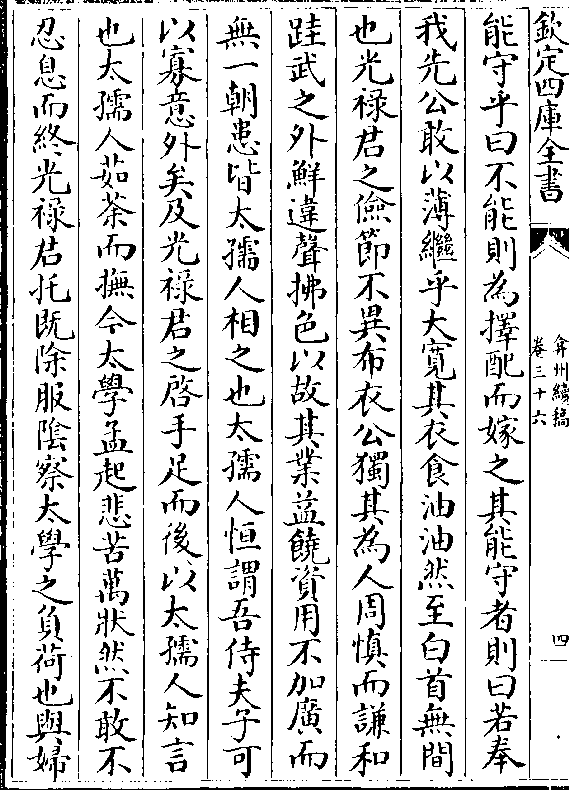 欽定四庫全書
弇州續稿
卷三十六
四
能守乎曰不能則為擇配而嫁之其能守者則曰若奉
我先公敢以薄繼乎大寛其衣食油油然至白首無間
也光禄君之儉節不異布衣公獨其為人周慎而謙和
跬武之外鮮違聲拂色以故其業益饒資用不加廣而
無一朝患皆太孺人相之也太孺人恒謂吾侍夫子可
以寡意外矣及光禄君之啓手足而後以太孺人知言
也太孺人茹荼而撫今太學孟起悲苦萬狀然不敢不
忍息而終光禄君托既除服隂察太學之負荷也與婦